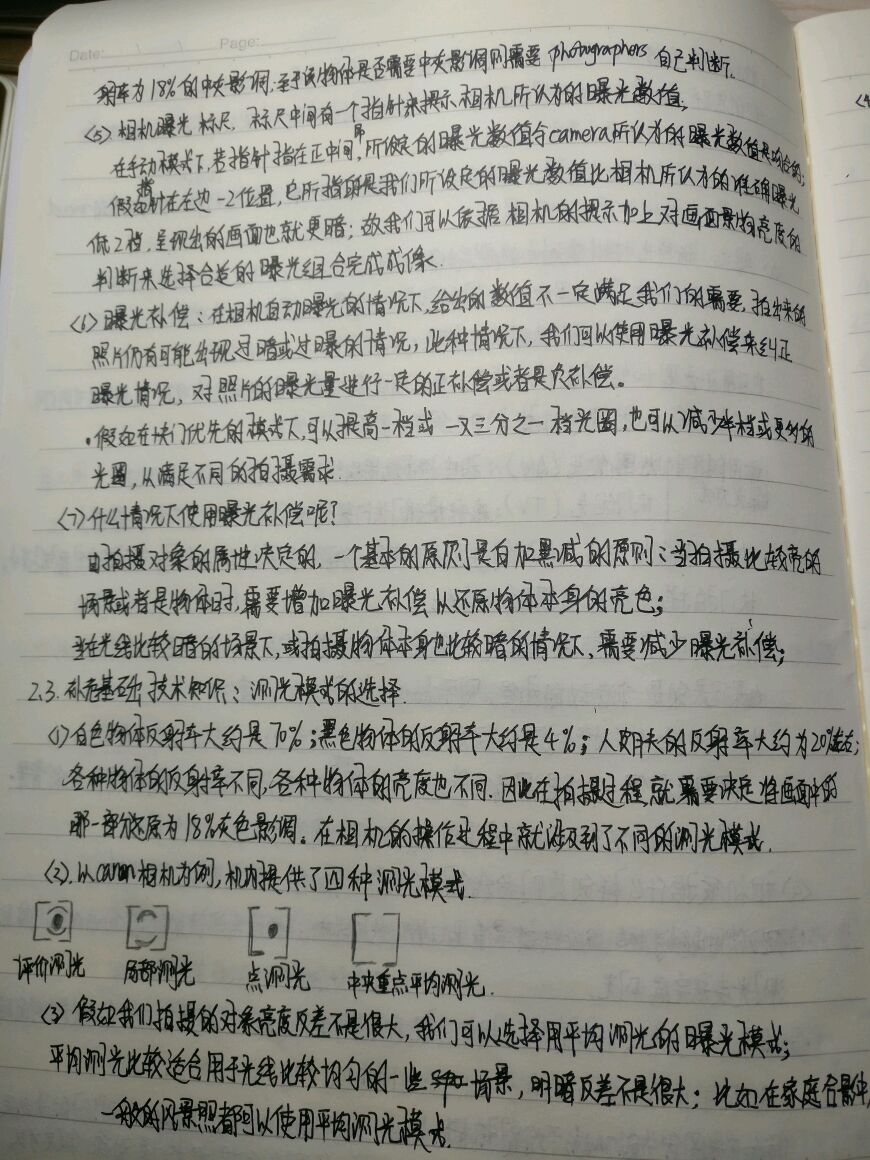 Date: / / Page:
射率为18%的中灰影调.至于该物体是否需要中灰影调则需要 photographers 自己判断.
<5> 相机曝光标尺. 标尺中间有一个指针来提示相机所认为的曝光数值,
在手动模式下,若指针指在正中间,所设定的曝光数值令camera所认为的曝光数值是吻合的;
假如指针在左边-2位置,它所指的是我们所设定的曝光数值比相机所认为的准确曝光
低2档.呈现出的画面也就更暗;故我们可以依据相机的提示加上对画面景物亮度的
判断来选择合适的曝光组合完成成像.
<6> 曝光补偿:在相机自动曝光的情况下,给出的数值不一定满足我们的需要,拍出来的
照片仍有可能出现过暗或过曝的情况,此种情况下,我们可以使用曝光补偿来纠正
曝光情况,对照片的曝光量进行一定的正补偿或者是欠补偿。
•假如在快门优先的模式下,可以提高一档或一又三分之一档光圈,也可以减少半档或更多的
光圈,从满足不同的拍摄需求.
<7>什么情况下使用曝光补偿呢?
由拍摄对象的属性决定的,一个基本的原则是白加黑减的原则:当拍摄比较亮的
场景或者是物体时,需要增加曝光补偿以还原物体本身的亮色;
当在光线比较暗的场景下,或拍摄物体本身也比较暗的情况下,需要减少曝光补偿;
2.3. 补充基础技术知识:测光模式的选择.
<1>白色物体反射率大约是70%;黑色物体的反射率大约是4%;人类的反射率大约为20%左右;
各种物体的反射率不同,各种物体的亮度也不同.因此在拍摄过程就需要决定将画面中的
那一部分还原为18%灰色影调。在相机的操作过程中就涉及到了不同的测光模式.
<2>.以canon相机为例,机内提供了四种测光模式.
评价测光 局部测光 点测光 中央重点平均测光.
<3> 假如我们拍摄的对象亮度反差不是很大,我们可以选择用平均测光的曝光模式;
平均测光比较适合用于光线比较均匀的一些场景,明暗反差不是很大;比如在家庭合影中,
一般的风景照都可以使用平均测光模式.